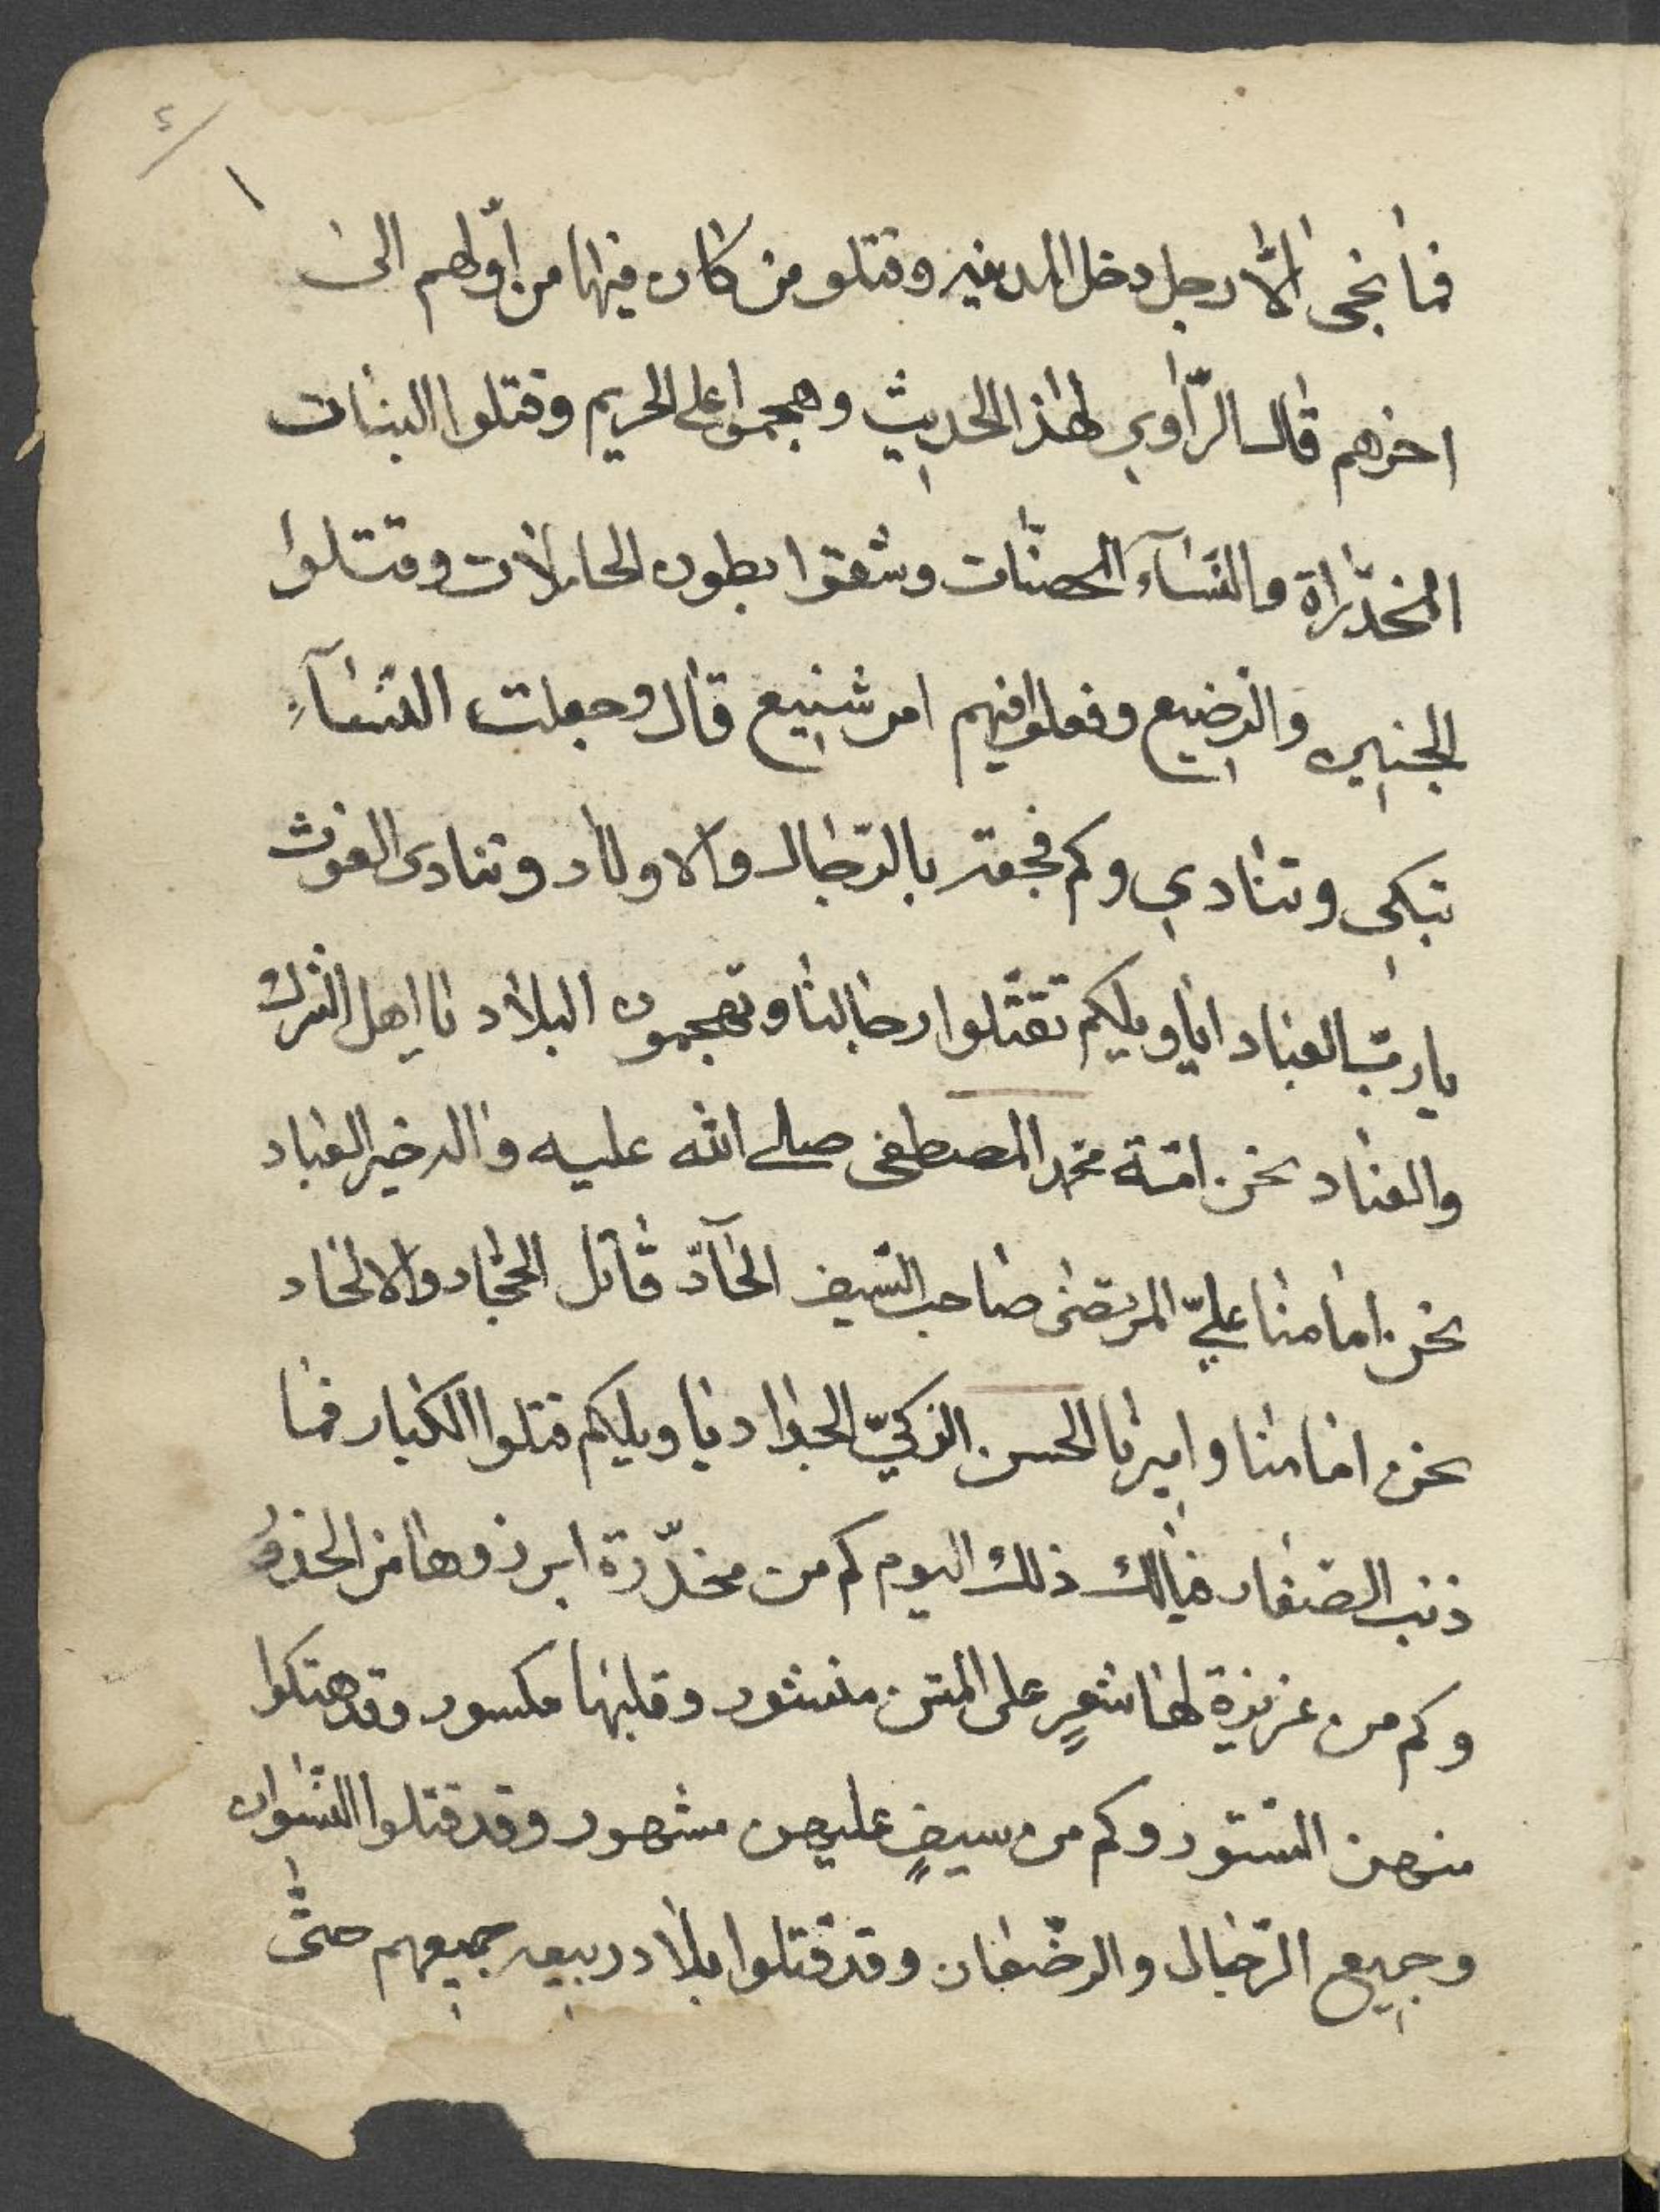 ٤
١
فما نجى الّا رجل دخل المدينه وقتلو من كان فيها من أوّلهم الى
اخرهم قال الرّاوي لهذا الحديث وهجموا على الحريم وقتلوا البنات
المخدّراة والنسآء المحصنّات وشققوا بطون الحاملات وقتلوا
الجنين والرضيع وفعلوا فيهم امر شنيع قال وجعلت النسآءِ
تبكي وتنادي وكم فجعته بالرّجال والاولاد وتنادى الغوث
يا ربّ العباد ايا ويليكم تقتلوا رجالنا وتهجمون البلاد يا اهل الشرك
والعناد نحن امّة محمّد المصطفى صلى الله عليه واله خير العباد
نحن امامنا عليّ المرتضى صاحب السّيف الحآدّ قاتل الجحّاد والالحاد
نحن امامنا واميرنا الحسن الزكيّ الجواد يا ويليكم قتلوا الكبار فما
ذنب الصّغار فيالك ذلك اليوم كم من مخدّرة ابرزوها من الخدر
وكم من عزيزة لها شعرٍ على المتن منشور وقلبها مكسور وقد هتكوا
منهن السّتور وكم من سيفٍ عليهن مشهور وقد قتلوا النّسوان
وجميع الرّجال والرضّعان وقد قتلوا بلاد ربيعه جميعهم حتّى